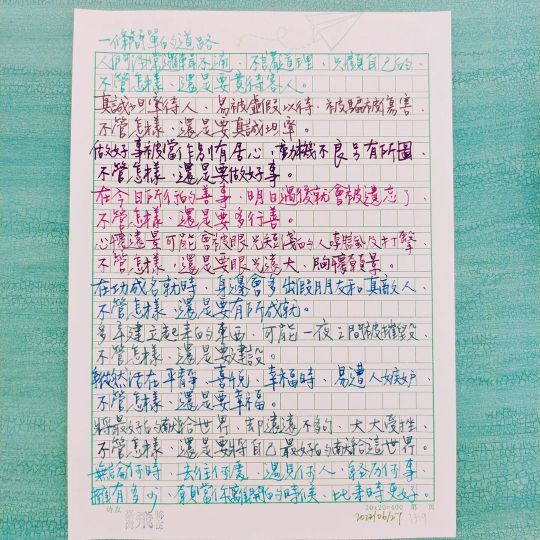 一條簡單的道路
人們經常邏輯不通、不講道理、只顧自己的、
不管怎樣、還是要善待客人。
真誠坦率待人、易被虛假以待、被騙被傷害、
不管怎樣、還是要真誠坦率。
做好事被當作別有居心、動機不良另有所圖、
不管怎樣、還是要做好事。
在今日所行的善事、明日過後就會被遺忘了、
不管怎樣、還是要多行善。
心懷遠景可能會被眼光短淺的人嘲諷及打擊、
不管怎樣、還是要眼光遠大、胸懷願景。
在功成名就時、身邊會多出假朋友和真敵人、
不管怎樣、還是要有所成就。
多年建立起來的東西、可能一夜之間被摧毀、
不管怎樣、還是要建設。
活在平靜、喜悅、幸福時、易遭人嫉妒、
不管怎樣、還是要幸福。
將最好的獻給世界、卻遠遠不夠、
不管怎樣、還是要將自己最好的獻給這世界。
無論何時、去往何處、遇見何人、經歷何事、
擁有多少、離開的時候、比來時更好。
20x20=400 第 頁
2022/06/27